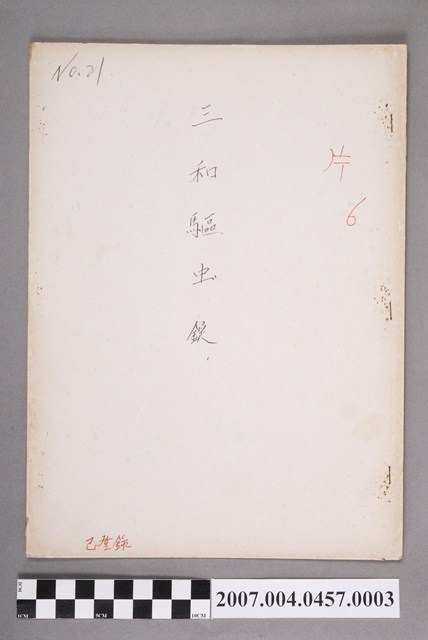 No.21
三和驅虫錠
片
6
已登錄
2007.004.0457.0003